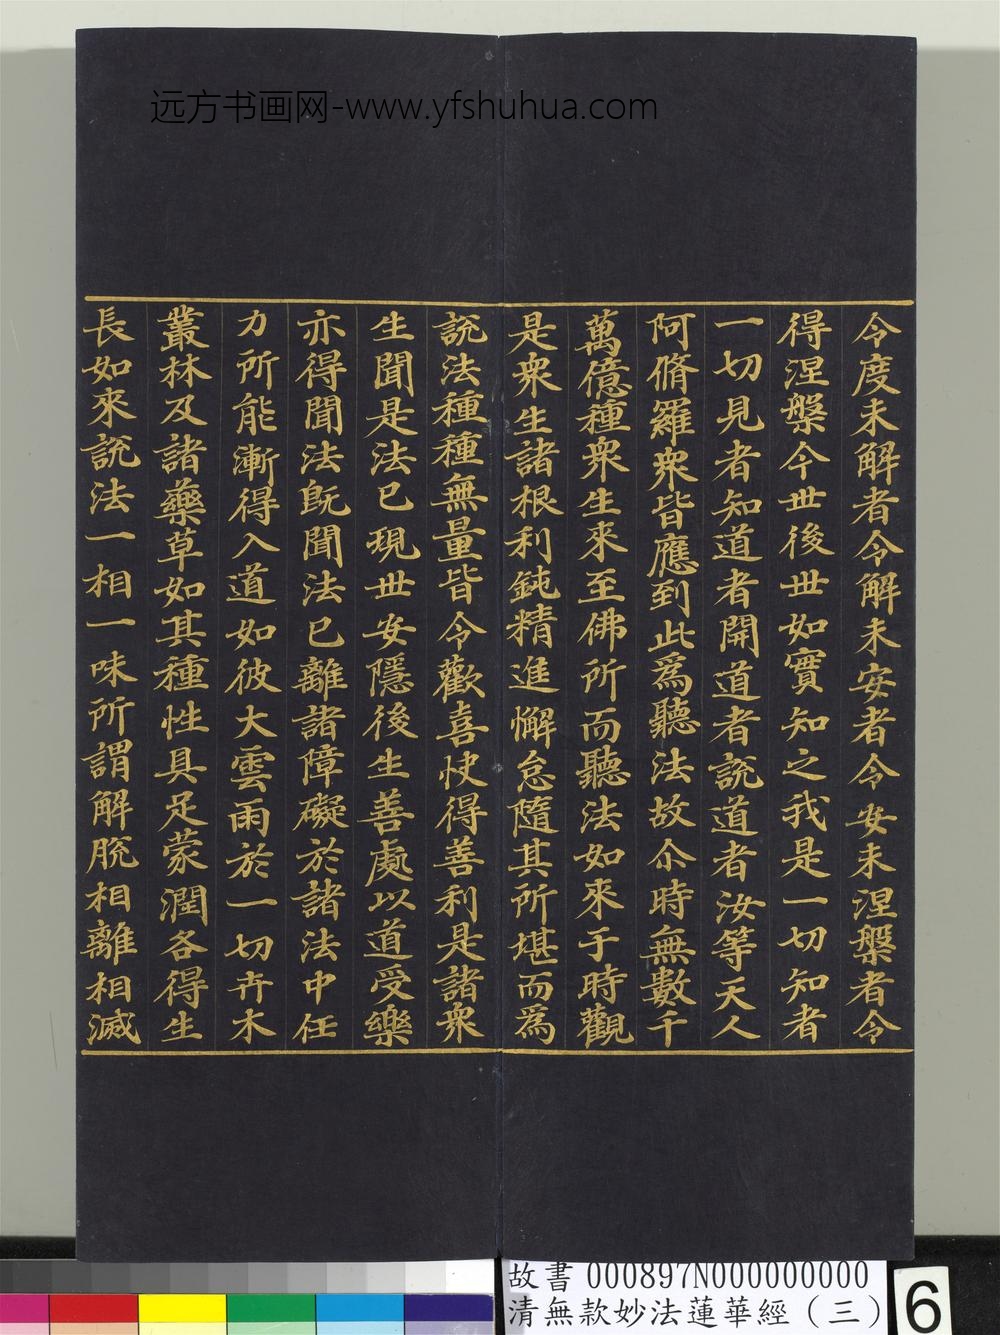 远方书画网-www.yfshuhua.com
令度未解者令解未安者令安未涅槃者令
得涅槃今世後世如實知之我是一切知者
一切見者知道者開道者說道者汝等天人
阿脩羅衆皆應到此為聽法故尒時無數千
萬億種衆生来至佛所而聽法如來于時觀
是衆生諸根利鈍精進懈怠隨其所堪而為
說法種種無量皆令歡喜快得善利是諸衆
生聞是法已現世安隱後生善處以道受樂
亦得聞法既聞法已離諸障礙於諸法中任
力所能漸得入道如彼大雲雨於一切卉木
叢林及諸藥草如其種性具足蒙潤各得生
長如来說法一相一味所謂解脫相離相滅
故書 000897N000000000
清無款妙法蓮華經（三）
6